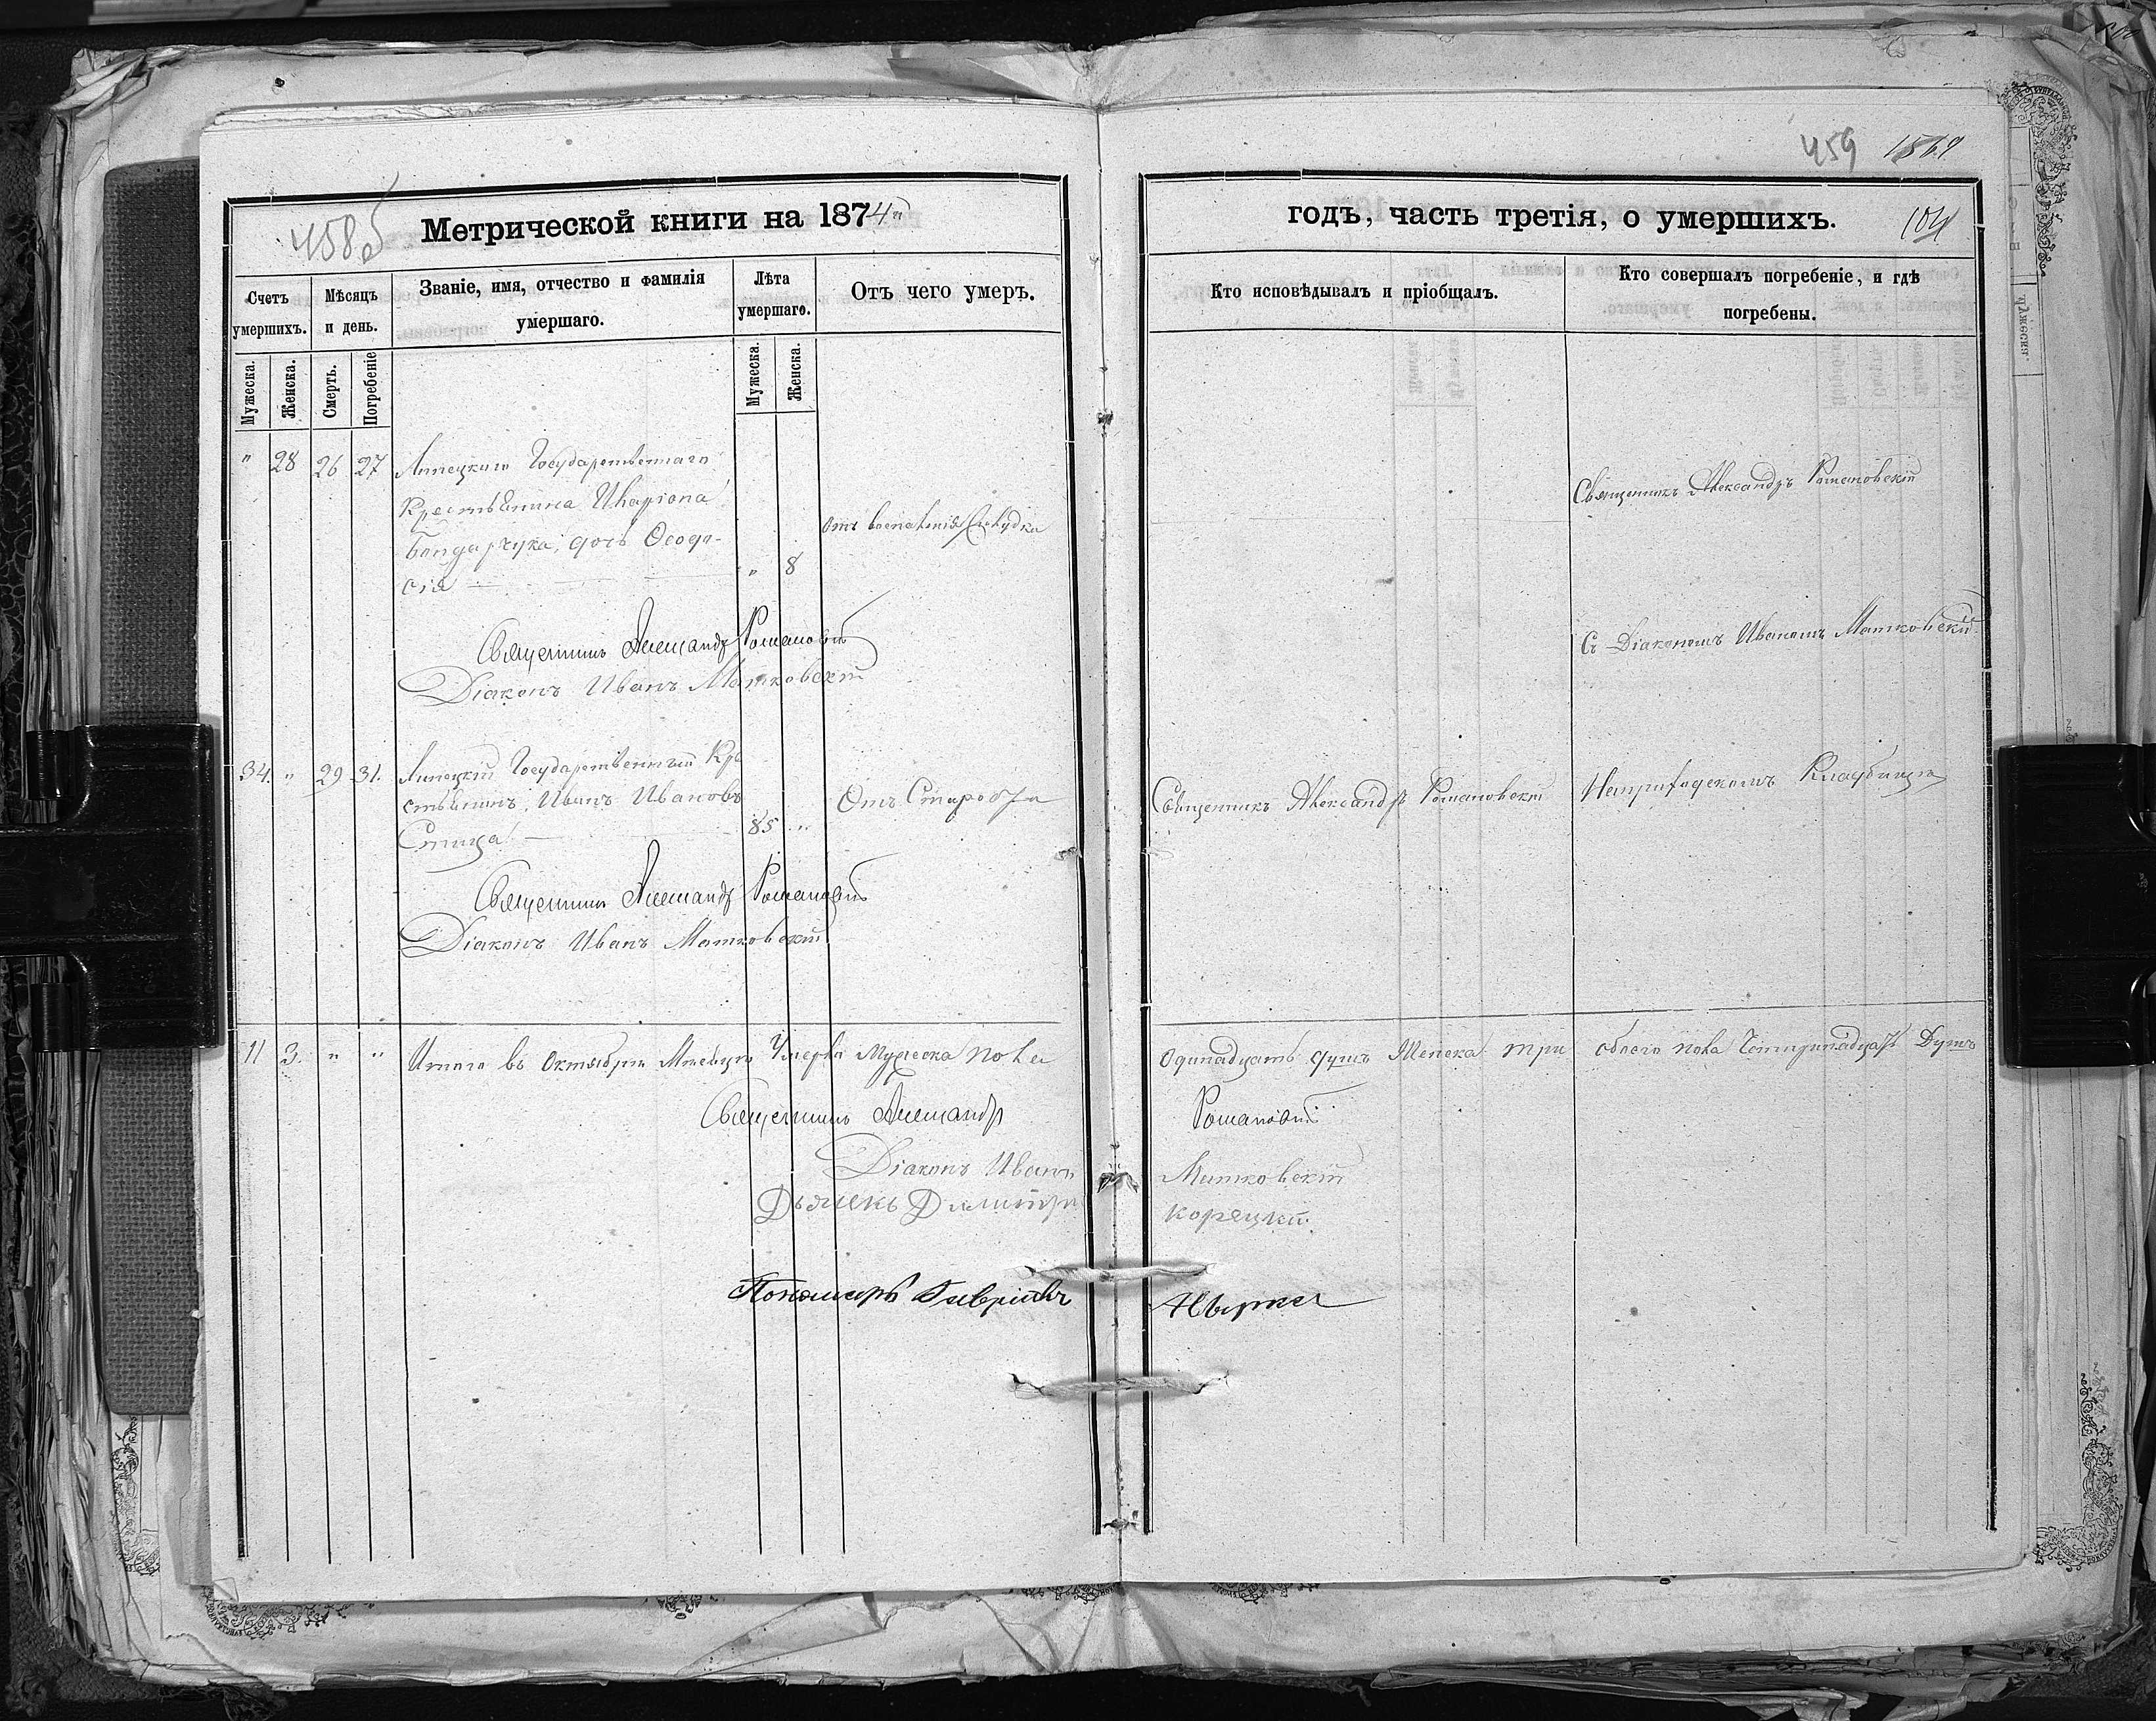 459 1569
458б Метрической книги на 1874й годъ, часть третія, о умершихъ. 104
Счетъ умершихъ.
Мѣсяцъ и день.
Званіе, имя, отчество и фамилія умершаго.
Лѣта умершаго.
Отъ чего умеръ.
Кто исповѣдывалъ и пріобщалъ.
Кто совершалъ погребеніе, и гдѣ погребены.
Мужеска. Женска. Смерть. Погребеніе Мужеска. Женска.
" 28 26 27 Липецкаго Государственнаго
Крестьянина Иларіона
Бондарчука, дочь Ѳеодо-
сія " 8
Отъ воспаленія
Священникъ Александръ Романовскій
Съ Діакономъ Иваномъ Матковскій
Священникъ Александръ Романовскій
Діаконъ Иванъ Матковскій
34. " 29 31. Липецкій Государственный Кре
стьянинъ, Иванъ Ивановъ
Спица 85 "
Отъ Старости
Священникъ Александръ Романовскій
На приходскомъ Кладбищѣ
Священникъ Александръ Романовскій
Діаконъ Иванъ Матковскій
11 3. " " Итого въ Октябрѣ Мѣсяцѣ Умерло Мужеска пола одинадцать душъ Женска три обоего пола Четырнадцать Душъ
Священникъ Александръ Романовскій
Діаконъ Иванъ Матковскій
Дьячекъ Димитрій Корецкій
Пономарь Гавріилъ